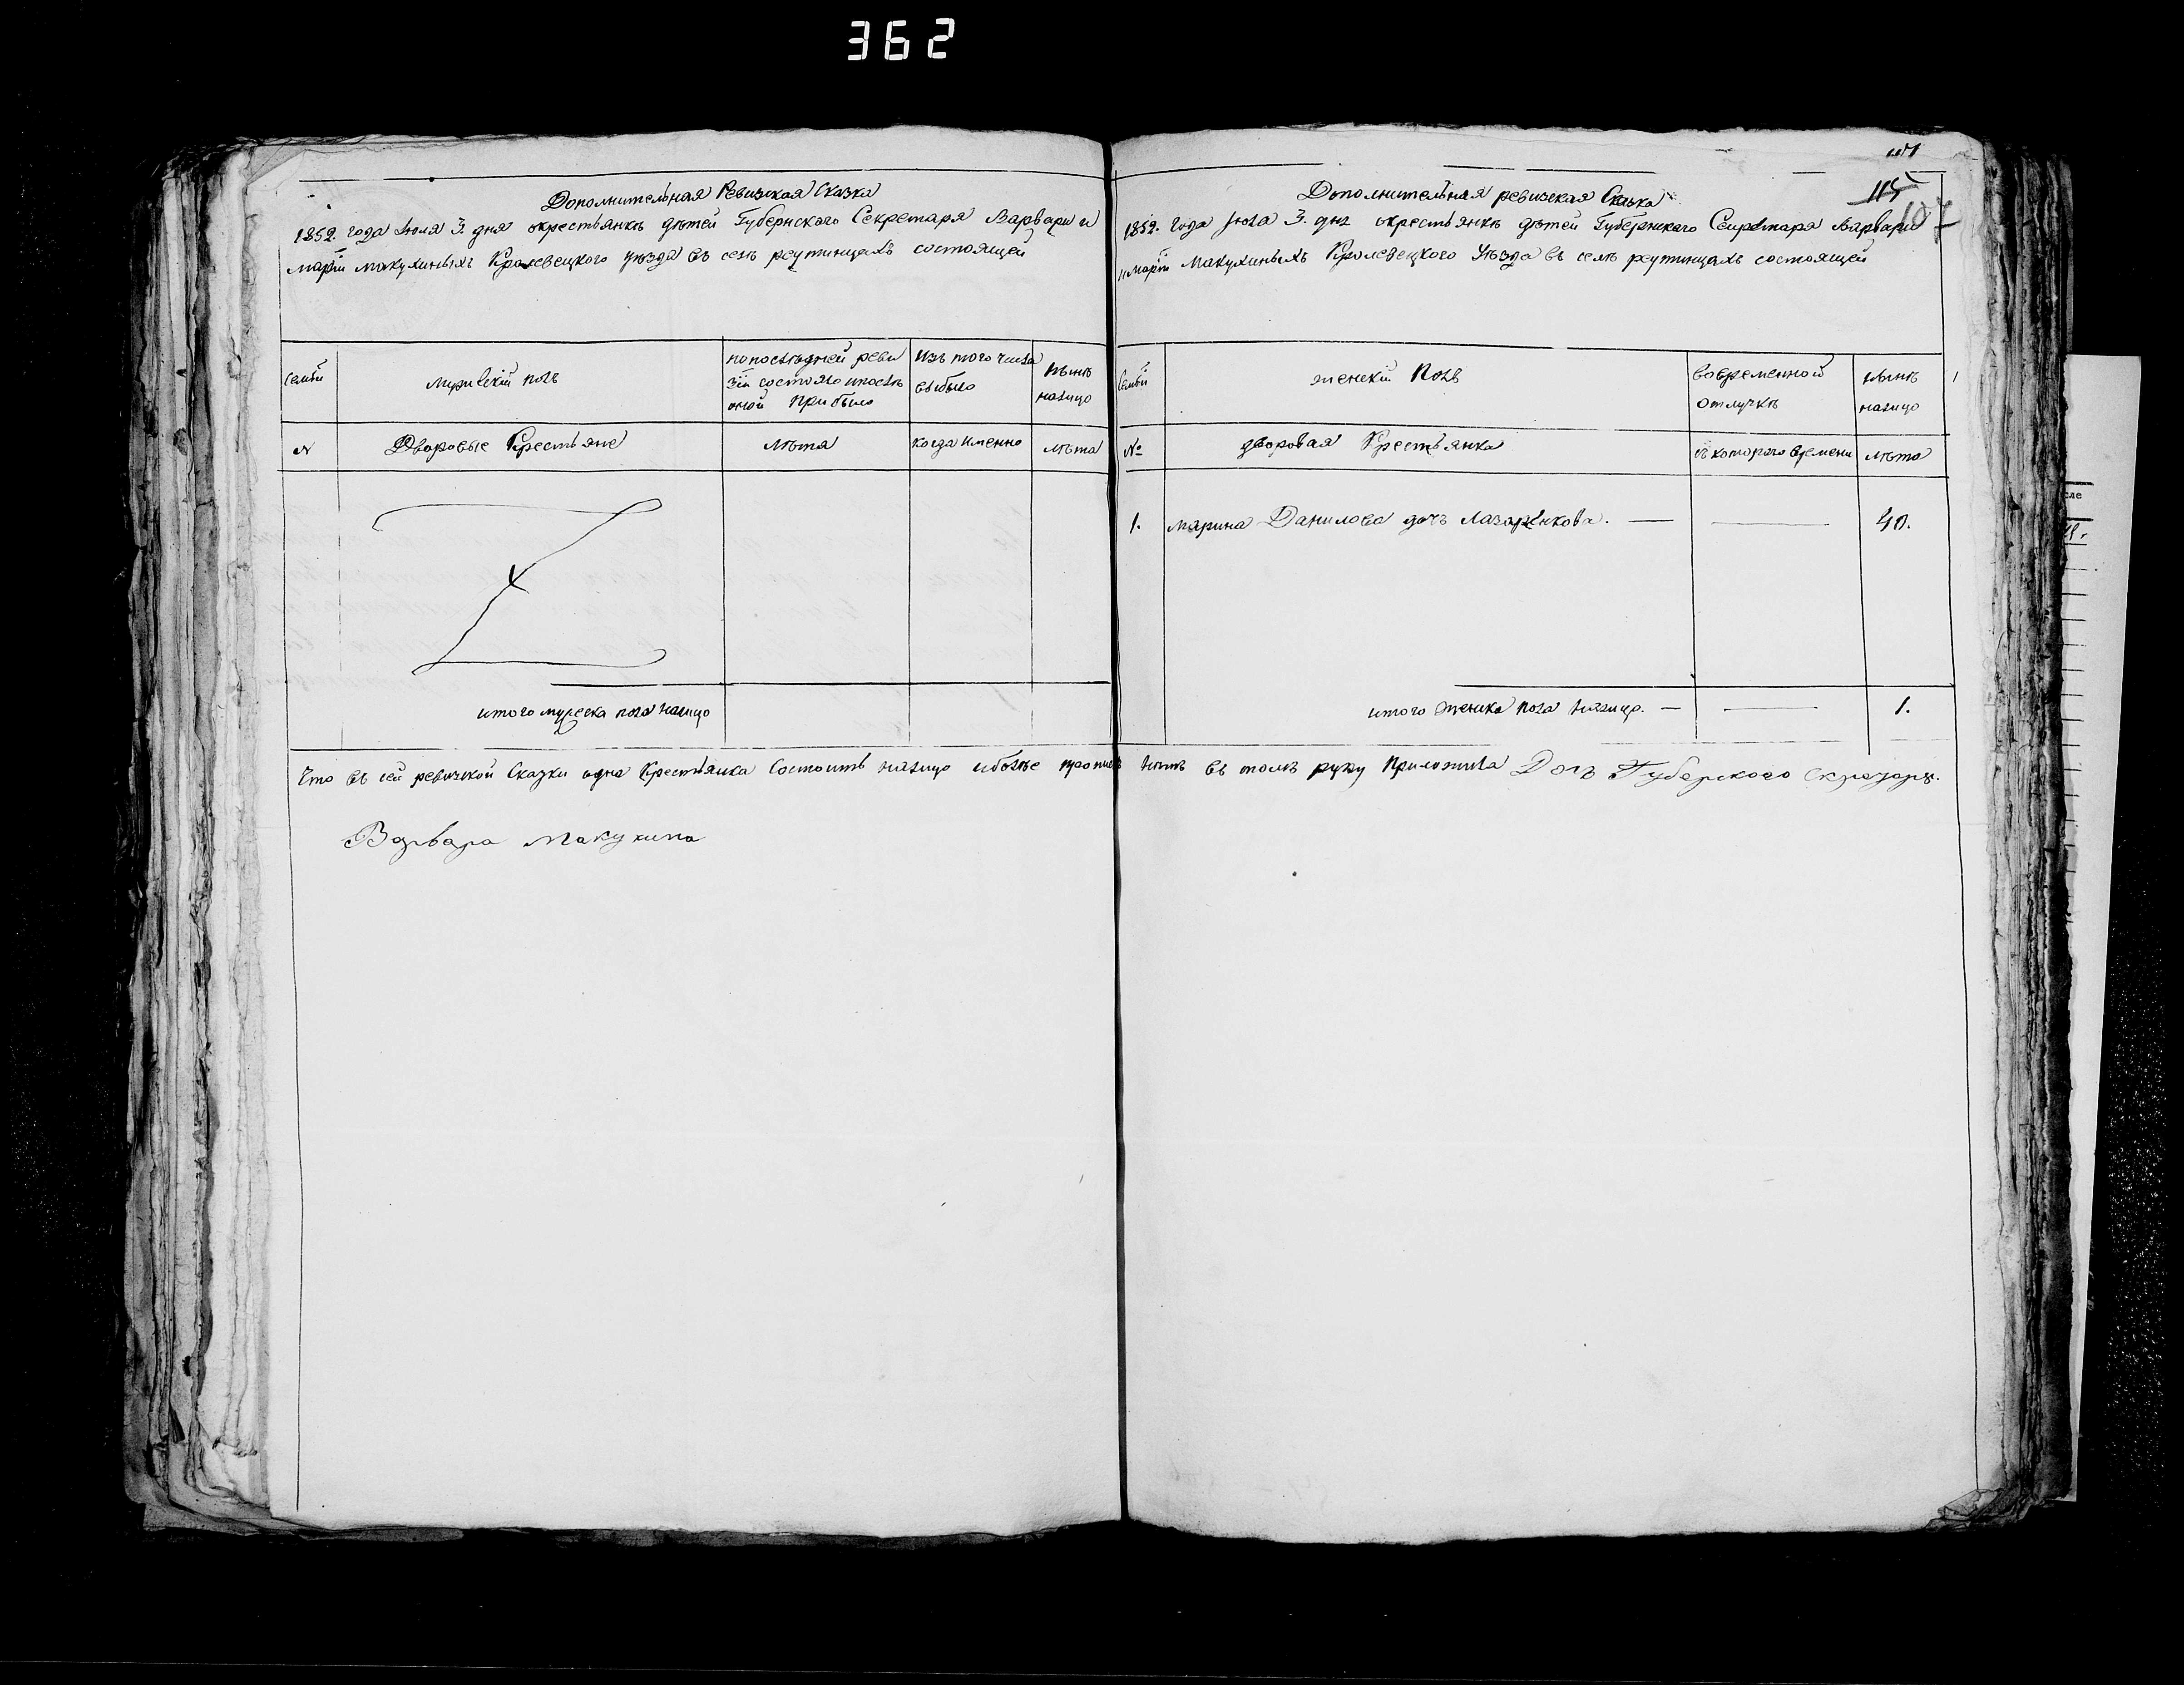 362
Дополнительная Ревизская Сказка
1852. года Июля 3. дня окрестьянкѣ дѣтей Губернскаго Секретаря Варвари и
Маріи Макухиныхъ Кролевецкого уѣзда въ селѣ реутинцахъ состоящей
семьи
мужескій полъ
по последней реви
зіи состояло ипослѣ
оной прибыло
Изъ того числа
выбыло
Нынѣ
налицо
N
Дворовые Крестьяне
лѣта
когда именно
лѣта
итого мужеска пола налицо
115
107
Дополнительная ревизская Сказка
1852. года Июля 3. дня окрестьянкѣ дѣтей Губернскаго Секретаря Варвари
и Маріи Макухиныхъ Кролевецкого Уѣзда въ селѣ реутинцахъ состоящей
семьи
женскій Полъ
вовременной
отлучкѣ
нынѣ
налицо
№
дворовая Крестьянка
съ котораго времени
лѣта
1. Марина Данилова дочь Лазаренкова. — — 40.
итого женска пола налицо. — — 1.
Что въ сей ревизской Сказки одна Крестьянка Состоитъ налицо иболѣе нѣтъ въ томъ руку Приложила Дочь Губерского Скретаря.
Варвара Макухина